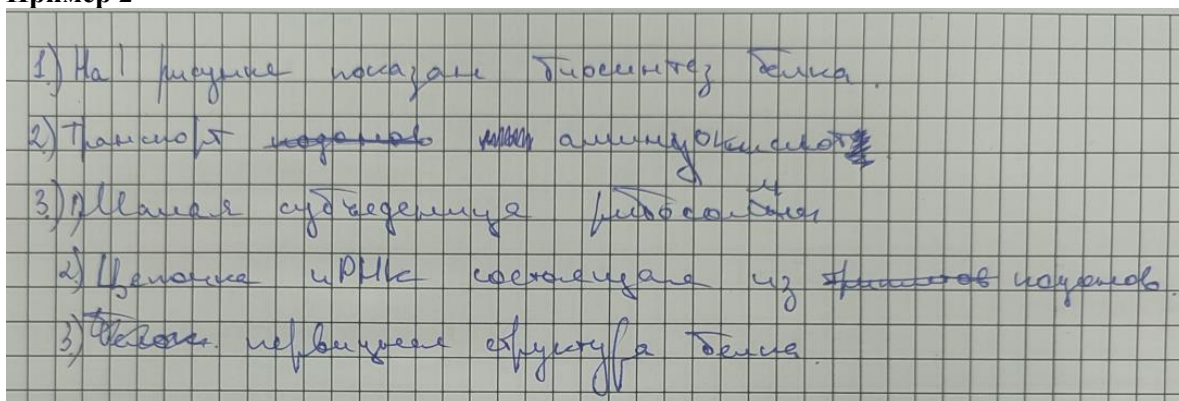 Пример 2
1.) На рисунке показан биосинтез белка.
2.) Транспорт аминокислот
3.) 1) Малая субъеденица рибосомы
2) Цепочка иРНК состоящая из кодонов.
3) первичная структура белка.